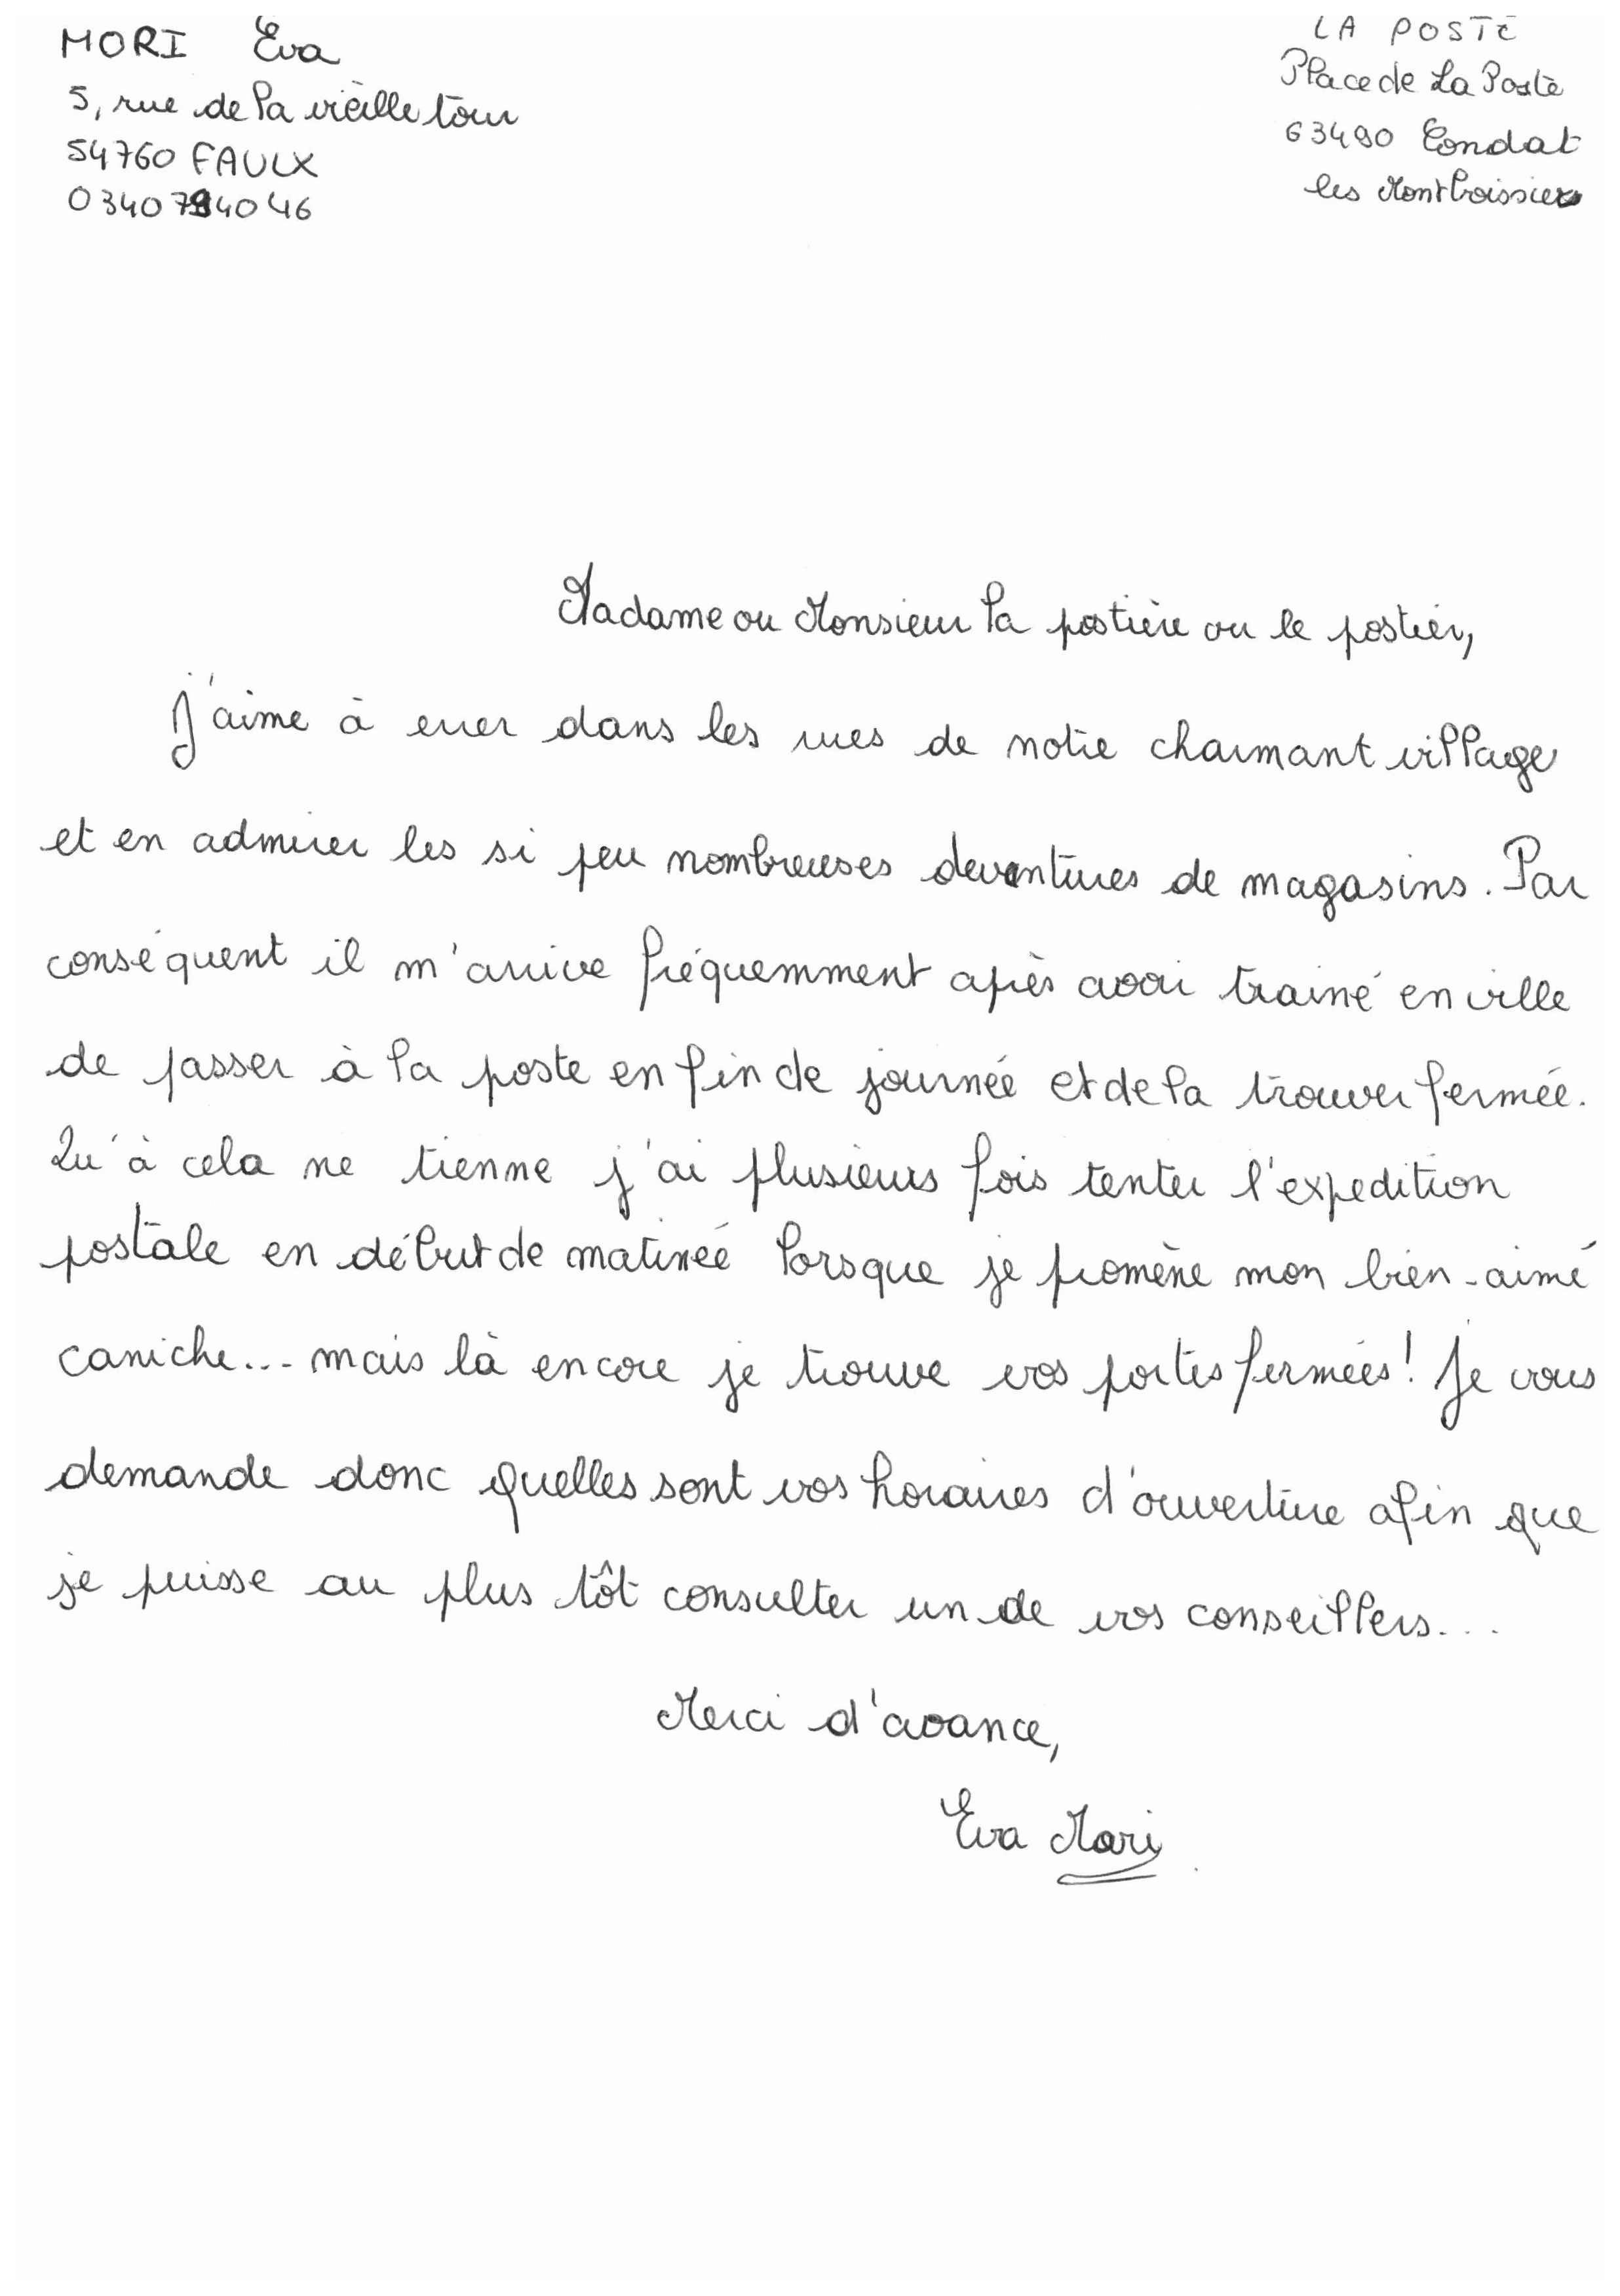 MORI Eva
5, rue de la vieille tour
54760 FAULX
LA POSTE
Place de La Poste
63490 Condat
les Montboissier
Madame ou Monsieur la postière ou le postier,
J'aime à errer dans les rues de notre charmant village
et en admirer les si peu nombreuses devantures de magasins. Par
conséquent il m'arrive fréquemment après avoir trainé en ville
de passer à la poste en fin de journée et de la trouver fermée.
Qu'à cela ne tienne j'ai plusieurs fois tenter l'expedition
postale en début de matinée lorsque je promène mon bien-aimé
caniche... mais là encore je trouve vos portes fermées! Je vous
demande donc quelles sont vos horaires d'ouverture afin que
je puisse au plus tôt consulter un de vos conseillers...
Merci d'avance,
Eva Mori